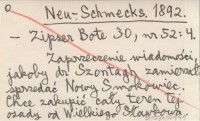 Neu-Schmecks. 1892.
- Zipser Bote 30, nr 52:4.
Zaprzeczenie wiadomości,
jakoby dr Szontagh zamierzał
sprzedać Nowy Smokowiec.
Chce zakupić cały teren tej
osady od Wielkiego Sławkowa.